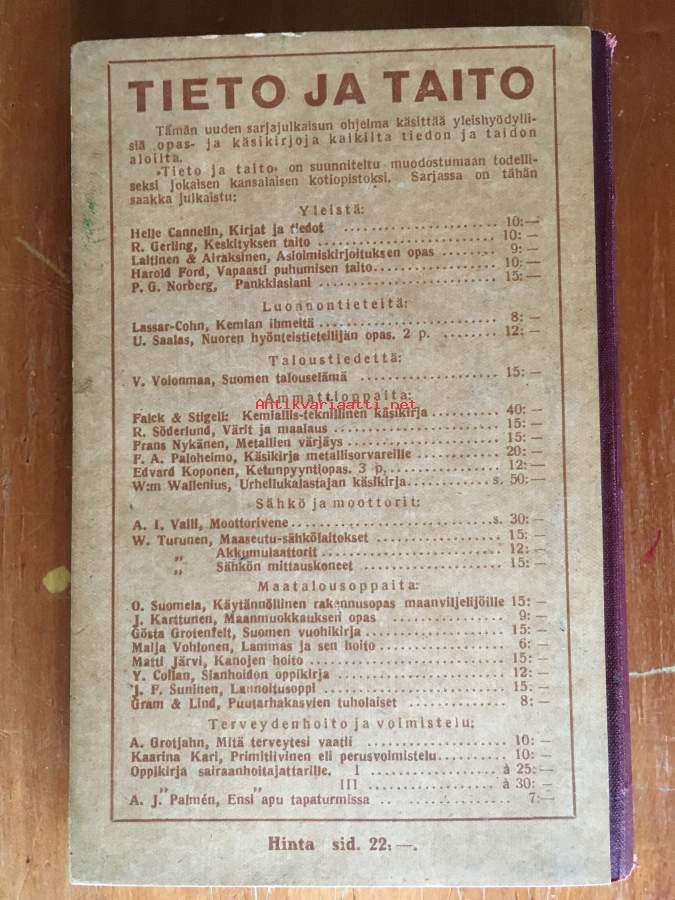 TIETO JA TAITO
Tämän uuden sarjajulkaisun ohjelma käsittää yleishyödylli-
siä opas- ja käsikirjoja kaikilta tiedon ja taidon
aloilta.
»Tieto ja taito» on suunniteltu muodostumaan todelli-
seksi jokaisen kansalaisen kotiopistoksi. Sarjassa on tähän
saakka julkaistu:
Yleistä:
Helle Cannelin, Kirjat ja tiedot 10:—
R. Gerling, Keskityksen taito 10:—
Laitinen & Airaksinen, Asioimiskirjoituksen opas 9:—
Harold Ford, Vapaasti puhumisen taito 10:—
P. G. Norberg, Pankkiasiani 15:—
Luonnontieteitä:
Lassar-Cohn, Kemian ihmeitä 8:—
U. Saalas, Nuoren hyönteistieteilijän opas. 2 p. 12:—
Taloustiedettä:
V. Voionmaa, Suomen talouselämä 15:—
Ammattioppaita:
Antikvariaatti.net
Falck & Stigell: Kemiallis-teknillinen käsikirja 40:—
R. Söderlund, Värit ja maalaus 15:—
Frans Nykänen, Metallien värjäys 15:—
F. A. Paloheimo, Käsikirja metallisorvareille 20:—
Edvard Koponen, Ketunpyyntiopas. 3 p. 12:—
W:m Wallenius, Urheilukalastajan käsikirja s. 50:—
Sähkö ja moottorit:
A. I. Valli, Moottorivene s. 30:—
W. Turunen, Maaseutu-sähkölaitokset 15:—
„ Akkumulaattorit 12:—
„ Sähkön mittauskoneet 15:—
Maatalousoppaita:
O. Suomela, Käytännöllinen rakennusopas maanviljelijöille 15:—
J. Karttunen, Maanmuokkauksen opas 9:—
Gösta Grotenfelt, Suomen vuohikirja 15:—
Maija Vohlonen, Lammas ja sen hoito 6:—
Matti Järvi, Kanojen hoito 15:—
Y. Collan, Sianhoidon oppikirja 12:—
J. F. Suninen, Lannoitusoppi 15:—
Gram & Lind, Puutarhakasvien tuholaiset 8:—
Terveydenhoito ja voimistelu:
A. Grotjahn, Mitä terveytesi vaatii 10:—
Kaarina Kari, Primitiivinen eli perusvoimistelu 10:—
Oppikirja sairaanhoitajattarille. I à 25:—
„ „ III à 30:—
A. J. Palmén, Ensi apu tapaturmissa 7:—
Hinta sid. 22:—.